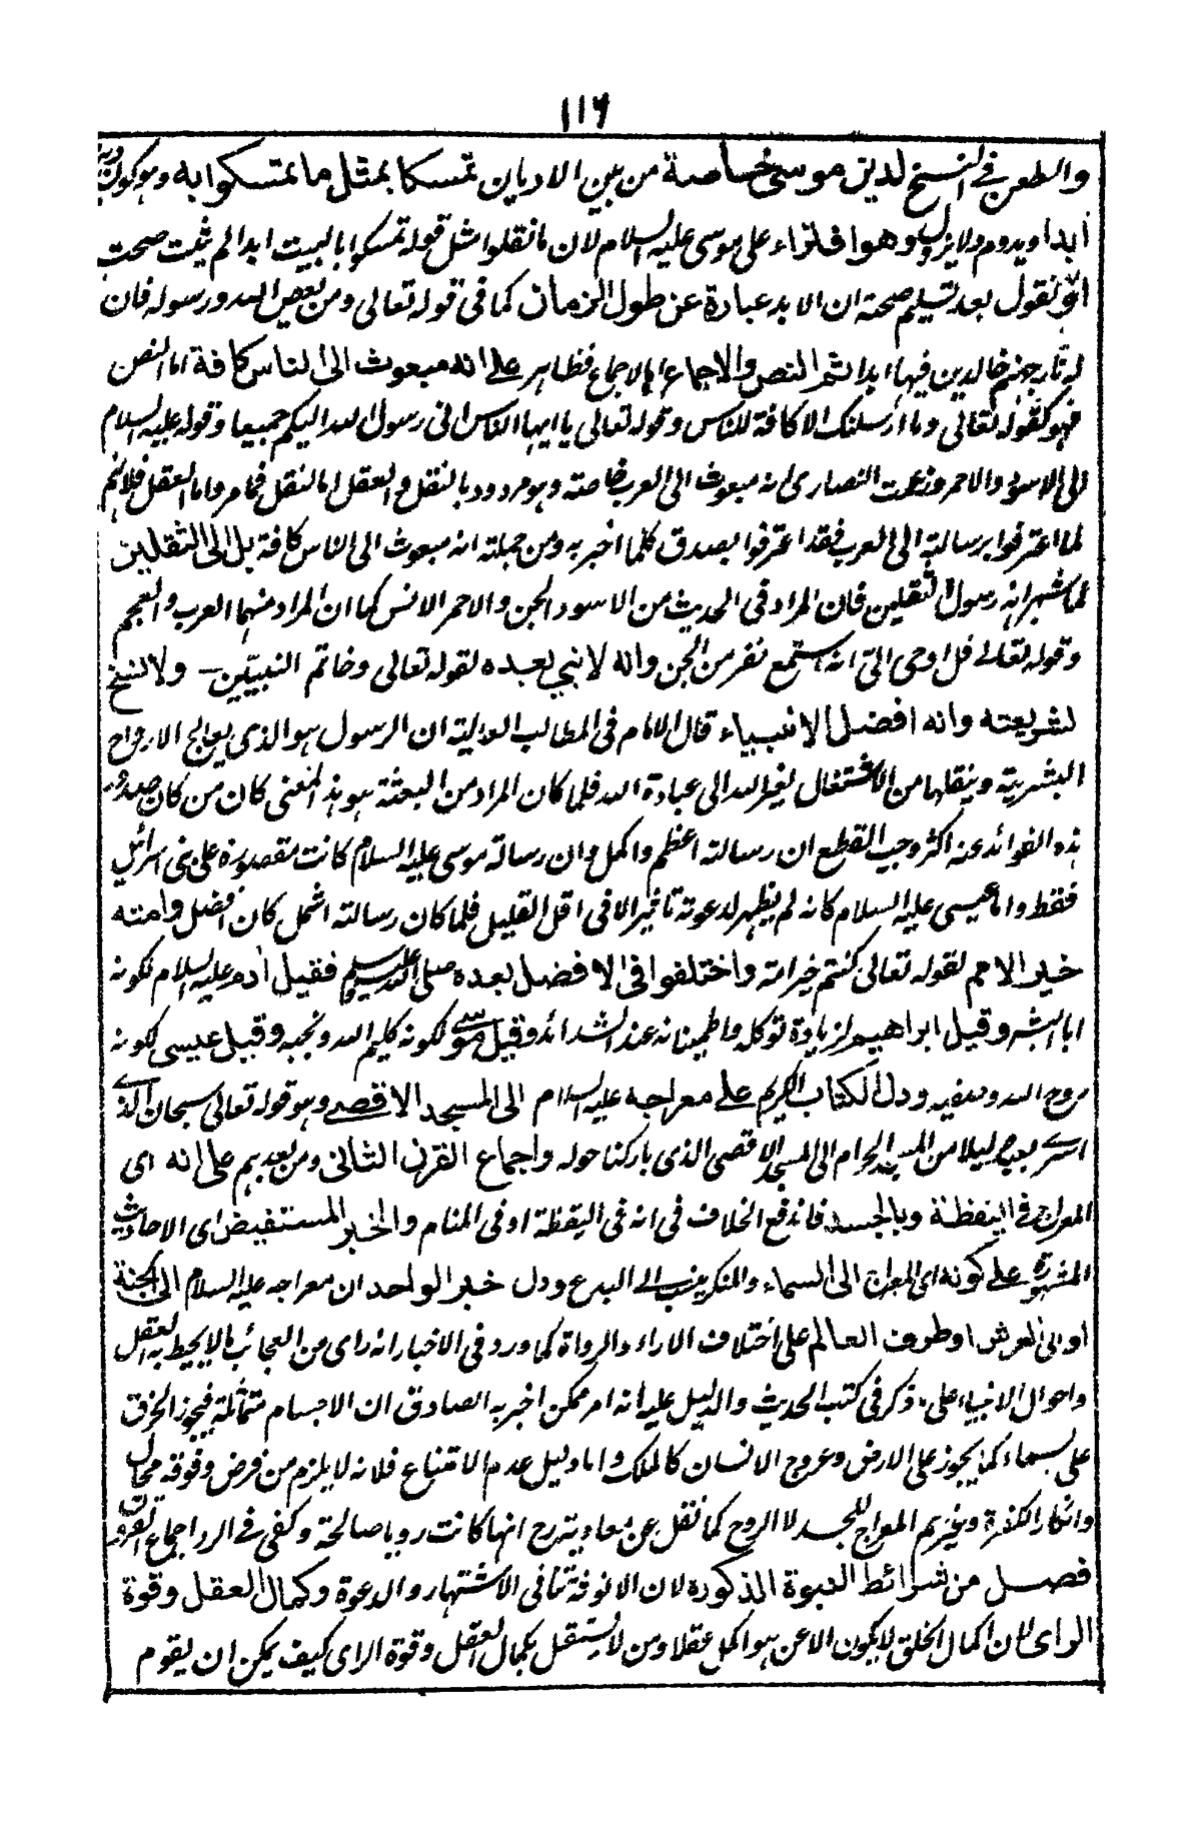 ١١٦
والطعن فى النسخ لدين موسى خاصة من بين الاديان تمسكا بمثل ما تمسكوا به وهو كون دينه
ابدا ويدوم ولا يزول وهو افتراء على موسى عليه السلام لان ما نقلوا مثل قوله تمسكوا بالبيت ابدا لم يثبت صحت
او نقول بعد تسليم صحته ان الابد عبارة عن طول الزمان كما فى قوله تعالى ومن يعص الله ورسوله فان
له نار جهنم خالدين فيها ابدا ثم النص والاجماع اما الاجماع فظاهر على انه مبعوث الى الناس كافة اما النص
فهو كقوله تعالى وما ارسلنك الا كافة للناس وقوله تعالى يا ايها الناس انى رسول الله اليكم جميعا وقوله عليه السلام
الى الاسود والاحمر وزعمت النصارى انه مبعوث الى العرب خاصته وهو مردود بالنقل والعقل اما النقل فما مر واما العقل فلانهم
لما اعترفوا برسالته الى العرب فقد اعترفوا بصدق كلما اخبر به ومن جملته انه مبعوث الى الناس كافة بل الى الثقلين
لما شهر انه رسول الثقلين فان المراد فى الحديث من الاسود الجن والاحمر الانس كما ان المراد منهما العرب والعجم
وقوله تعالى قل اوحى الىّ انه استمع نفر من الجن وانه لا نبى بعده لقوله تعالى وخاتم النبيين ولا نسخ
لشريعته وانه افضل الانبياء قال الامام فى المطالب العالية ان الرسول هو الذى يعالج الارواح
البشرية وينقلها من الاشتغال بغير الله الى عبادة الله فلما كان المراد من البعثة هو هذا المعنى كان من كان صدور
هذه الفوائد عنه اكثر وجب القطع ان رسالته اعظم واكمل وان رسالة موسى عليه السلام كانت مقصورة على بنى اسرائيل
فقط واما عيسى عليه السلام كانه لم يظهر لدعوته تاثير الا فى اقل القليل فلما كان رسالته اشمل كان افضل وامته
خير الامم لقوله تعالى كنتم خير امة واختلفوا فى الافضل بعده صلى الله عليه وسلم فقيل آدم عليه السلام لكونه
ابا البشر وقيل ابراهيم لزيادة توكله واطمينانه عند الشدائد وقيل موسى لكونه كليم الله ونجيه وقيل عيسى لكونه
روح الله وصفيه ودل الكتاب الكريم على معراجه عليه السلام الى المسجد الاقصى وهو قوله تعالى سبحان الذى
اسرى بعبده ليلا من المسجد الحرام الى المسجد الاقصى الذى باركنا حوله واجماع القرن الثانى ومن بعدهم على انه اى
المعراج فى اليقظة وبالجسد فاندفع الخلاف فى انه فى اليقظة او فى المنام والخبر المستفيض اى الاحاديث
المشهورة على كونه اى المعراج الى السماء والمنكر ينسب الى البدع ودل خبر الواحد ان معراجه عليه السلام الى الجنة
او الى العرش او طرف العالم على اختلاف الاراء والرواة كما ورد فى الاخبار انه راى من العجائب ما لا يحيط به العقل
واحوال الانبياء على ما ذكر فى كتب الحديث والدليل عليه انه امر ممكن اخبر به الصادق ان الاجسام متماثلة فيجوز الخرق
على السماء كما يجوز على الارض وعروج الانسان كالملك واما دليل عدم الامتناع فلانه لا يلزم من فرض وقوعه محال
وانكار الكفرة وغيرهم المعراج للجسد لا الروح كما نقل عن معاوية رح انها كانت رويا صالحة وكفى فى الرد اجماع القرون
فصل من شرائط النبوة الذكورة لان الانوثة تنافى الاشتهار والدعوة وكمال العقل وقوة
الراى لان اكمال الخلق لا يكون الا عن هو اكمل عقلا ومن لا يستقل بكمال العقل وقوة الراى كيف يمكن ان يقوم